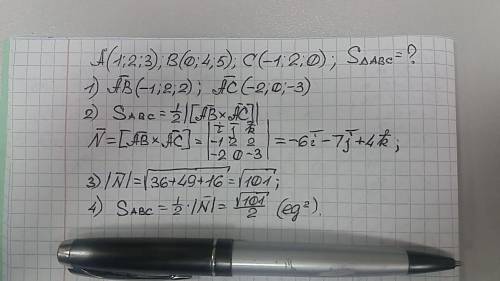 A(1;2;3); B(0;4;5); C(-1;2;0); S△ABC=?
1) A̅B̅(-1;2;2); A̅C̅(-2;0;-3)
2) SABC=½|[A̅B̅×A̅C̅]|
N̅=[A̅B̅×A̅C̅]=|i̅ j̅ k̅; -1 2 2; -2 0 -3|=-6i̅-7j̅+4k̅;
3) |N̅|=√(36+49+16)=√101;
4) SABC=½·|N̅|=√101/2 (eg²).